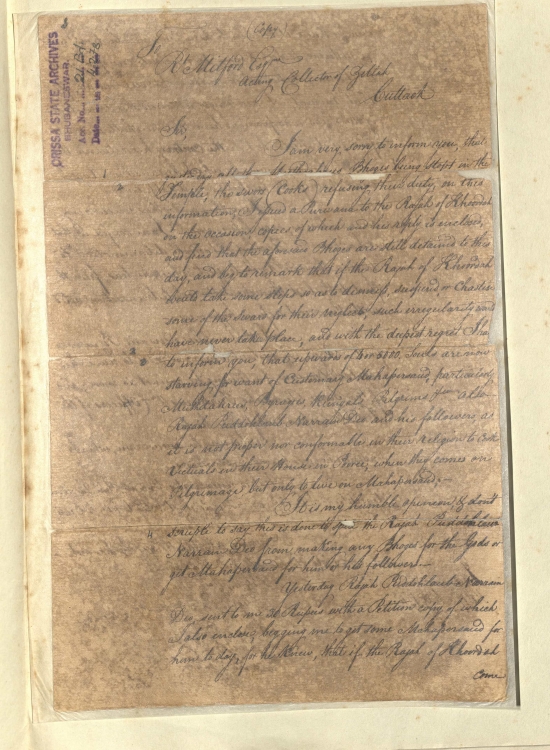 (Copy)
To
Rt. Mitford Esqr
Acting Collector of Zillah
Cuttack
ORISSA STATE ARCHIVES
BHUBANESWAR.
Acc No.
Date
Sir,
I am very sorry to inform you, that
Bhoges being stopt in the
Temple, the Swars (Cooks) refusing their duty, on this
information, I issued a Purwanna to the Rajah of Khoordah
on the occasion, copies of which and his reply is enclosed,
and find that the aforesaid Bhoges are still detained to this
day, and beg to remark that if the Rajah of Khoordah
would take some steps so as to dismiss, suspend or Chastise
some of the Swars for their neglect, such irregularity would
have never take place, and with the deepest regret I have
to inform you, that upwards of 4 or 5000, Souls are now
starving for want of Customary Mahapersaud, particularly
Byragees, Khungals, Pilgrims &ca also
Rajah Narrain Deo and his followers, as
it is not proper nor conformable in their Religion to Cook
Victuals in their House in Pooree, when they comes on
Pilgrimage but only to live on Mahapersaud;—
It is my humble openion & don't
4 scruple to say this is done to the Rajah
Narrain Deo from making any Bhoges for the Gods or
get Mahapersaud for him or his followers.—
Yesterday Rajah Narrain
Deo, sent to me Rupees with a Petition copy of which
I also enclose, begging me to get some Mahapersaud for
him to day, for he knew, that if the Rajah of Khoordah
Come